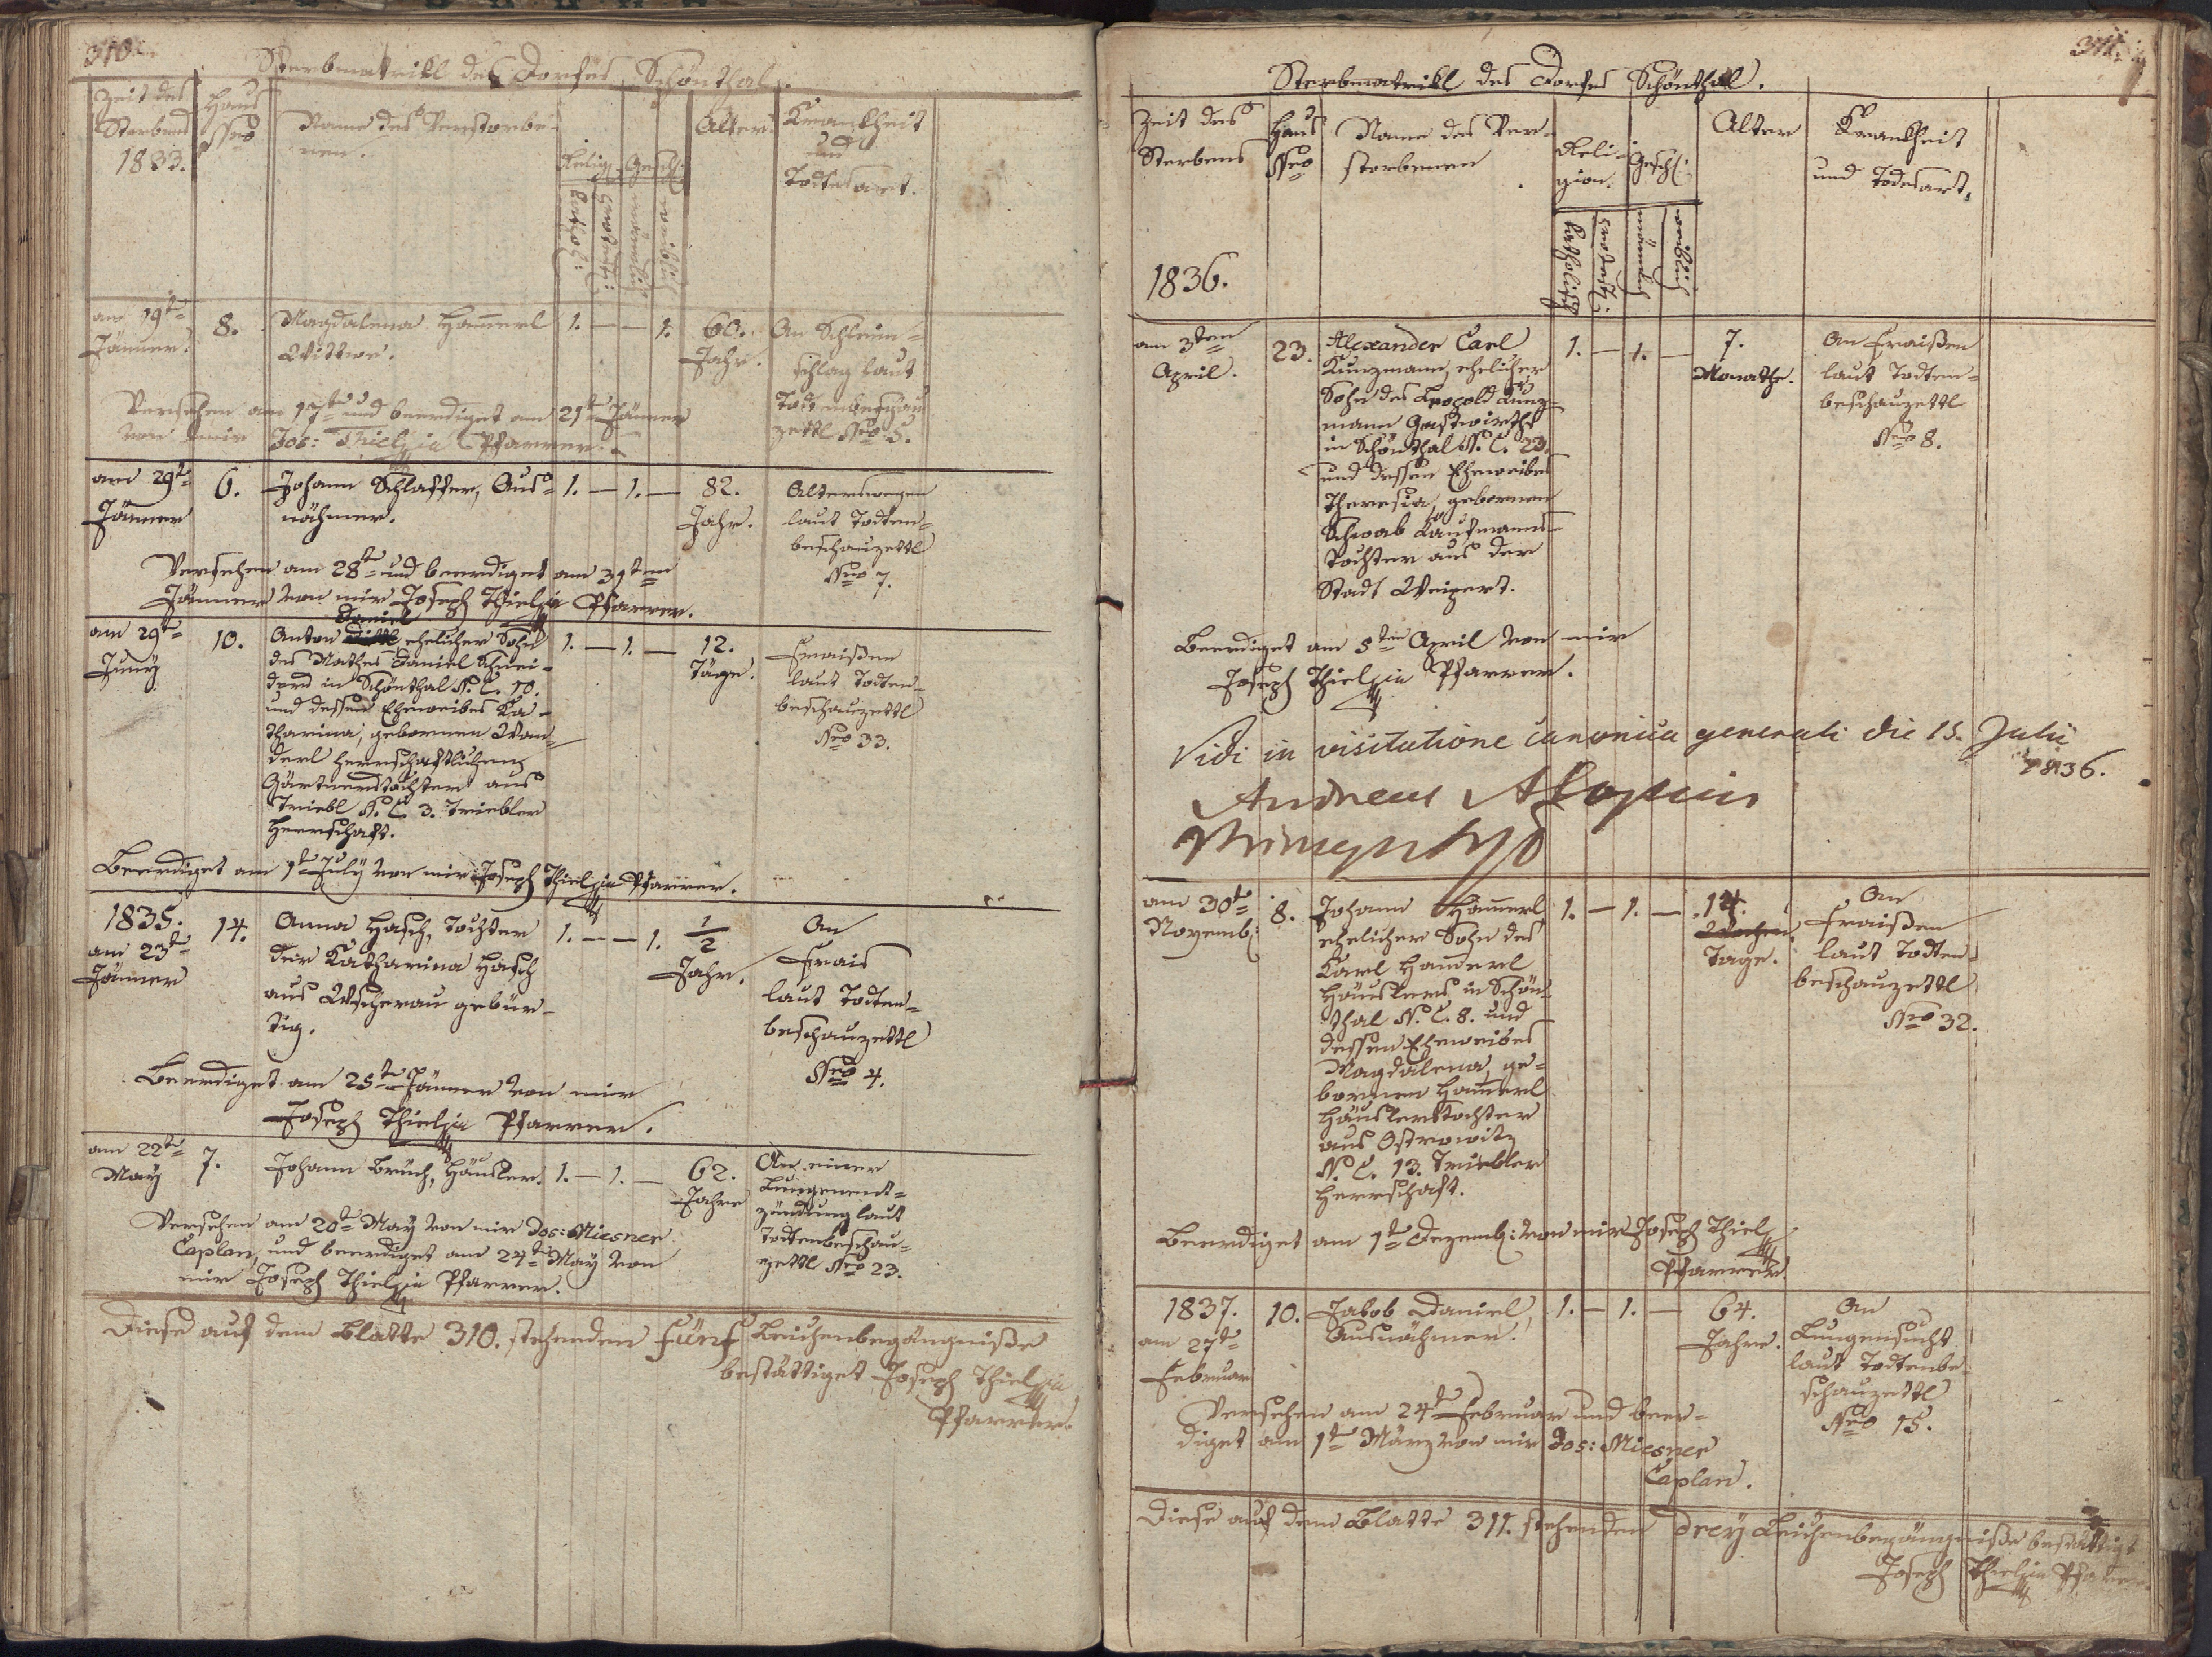 310.
Sterbmatrikl des Dorfes Schönthal.
Zeit des
Sterbens
1833.
Haus
Nro
Name des Verstorbe-
nen.
Relig:
Geschl:
kathol:
protest:
männlich
weiblich
Alter.
Krankheit
und
Todtesart.
am 19t=
Jänner.
8.
Magdalena Ham̄erl
Wittwe.
1. — — 1.
60.
Jahr.
An Schleim-
schlag laut
Todtenbeschau
zettl Nro 5.
Versehen am 17t und beerdiget am 21t Jänner
von mir Jos: Thiel Pfarrer.
am 29t=
Jänner
6.
Johann Schlaffer, Aus-
nähmer.
1. — 1. —
82.
Jahr.
Alterswegen
laut Todten-
beschauzettl
Nro 7.
Versehen am 28t und beerdiget am 31ten
Jänner von mir Joseph Thiel Pfarrer.
am 29t=
Juny
10.
Daniel
Anton ehelicher Sohn
des Mathes Daniel Schnei-
ders in Schönthal N. C. 10.
und dessen Eheweibes Ka-
tharina, gebornen Wan-
derl herrschaftlichen
Gärtnerstochter aus
Triebl N. C. 3. Triebler
Herrschaft.
1. — 1. —
12.
Täge.
Fraißen
laut Todten-
beschauzettl
Nro 33.
Beerdiget am 1t July von mir Joseph Thiel Pfarrer.
1835.
am 23t=
Jänner
14.
Anna Hasch, Tochter
der Katharina Hasch
aus Wscherau gebür-
tig.
1. — — 1.
1/2
Jahr.
An
Frais
laut Todten-
beschauzettl
Nro 4.
Beerdiget am 25t Jänner von mir
Joseph Thiel Pfarrer.
am 22t=
May
7.
Johann Bruch, Häusler.
1. — 1. —
62.
Jahre
An einer
Lungenent-
zündung laut
Todtenbeschau-
zettl Nro 23.
Versehen am 20t May von mir Jos: Miesner
Caplan, und beerdiget am 24t May von
mir Joseph Thiel Pfarrer.
Diese auf dem Blatte 310. stehenden fünf Leichenbegängniße
bestättiget Joseph Thiel
Pfarrer.
311.
Sterbmatrikl des Dorfes Schönthal.
Zeit des
Sterbens
1836.
Haus
Nro
Name des Ver-
storbenen
Reli-
gion.
Geschl:
katholisch
protest:
männlich
weiblich
Alter
Krankheit
und Todesart.
am 3ten
April.
23.
Alexander Carl
Kunzmann, ehelicher
Sohn des Leopold Kunz-
mann Gastwirths
in Schönthal N. C. 23.
und dessen Eheweibes
Theresia, gebornen
Schwab Kaufmanns-
tochter aus der
Stadt Weipert.
1. — 1. —
7.
Monathe.
An Fraißen
laut Todten-
beschauzettl
Nro 8.
Beerdiget am 5ten April von mir
Joseph Thiel Pfarrer.
Vidi in visitatione canonica generali die 15. Julii
1836.
Andreas Aloysius
am 30t=
Novemb:
8.
Johann Ham̄erl
ehelicher Sohn des
Karl Ham̄erl
Häuslers in Schön-
thal N. C. 8. und
dessen Eheweibes
Magdalena, ge-
bornen Ham̄erl
Häuslerstochter
aus Ostrowitz
N. C. 13. Triebler
Herrschaft.
1. — 1. —
14.
Wochen
Tage.
An
Fraißen
laut Todten-
beschauzettl
Nro 32.
Beerdiget am 1t Dezemb: von mir Joseph Thiel
Pfarrer
1837.
am 27t=
Februar
10.
Jakob Daniel,
Ausnähmer.
1. — 1. —
64.
Jahre.
An
Lungensucht
laut Todtenbe-
schauzettl
Nro 15.
Versehen am 24t Februar und beer-
diget am 1t März von mir Jos: Miesner
Caplan.
Diese auf dem Blatte 311. stehenden drey Leichenbegängniße bestättigt
Joseph Thiel Pfarrer.